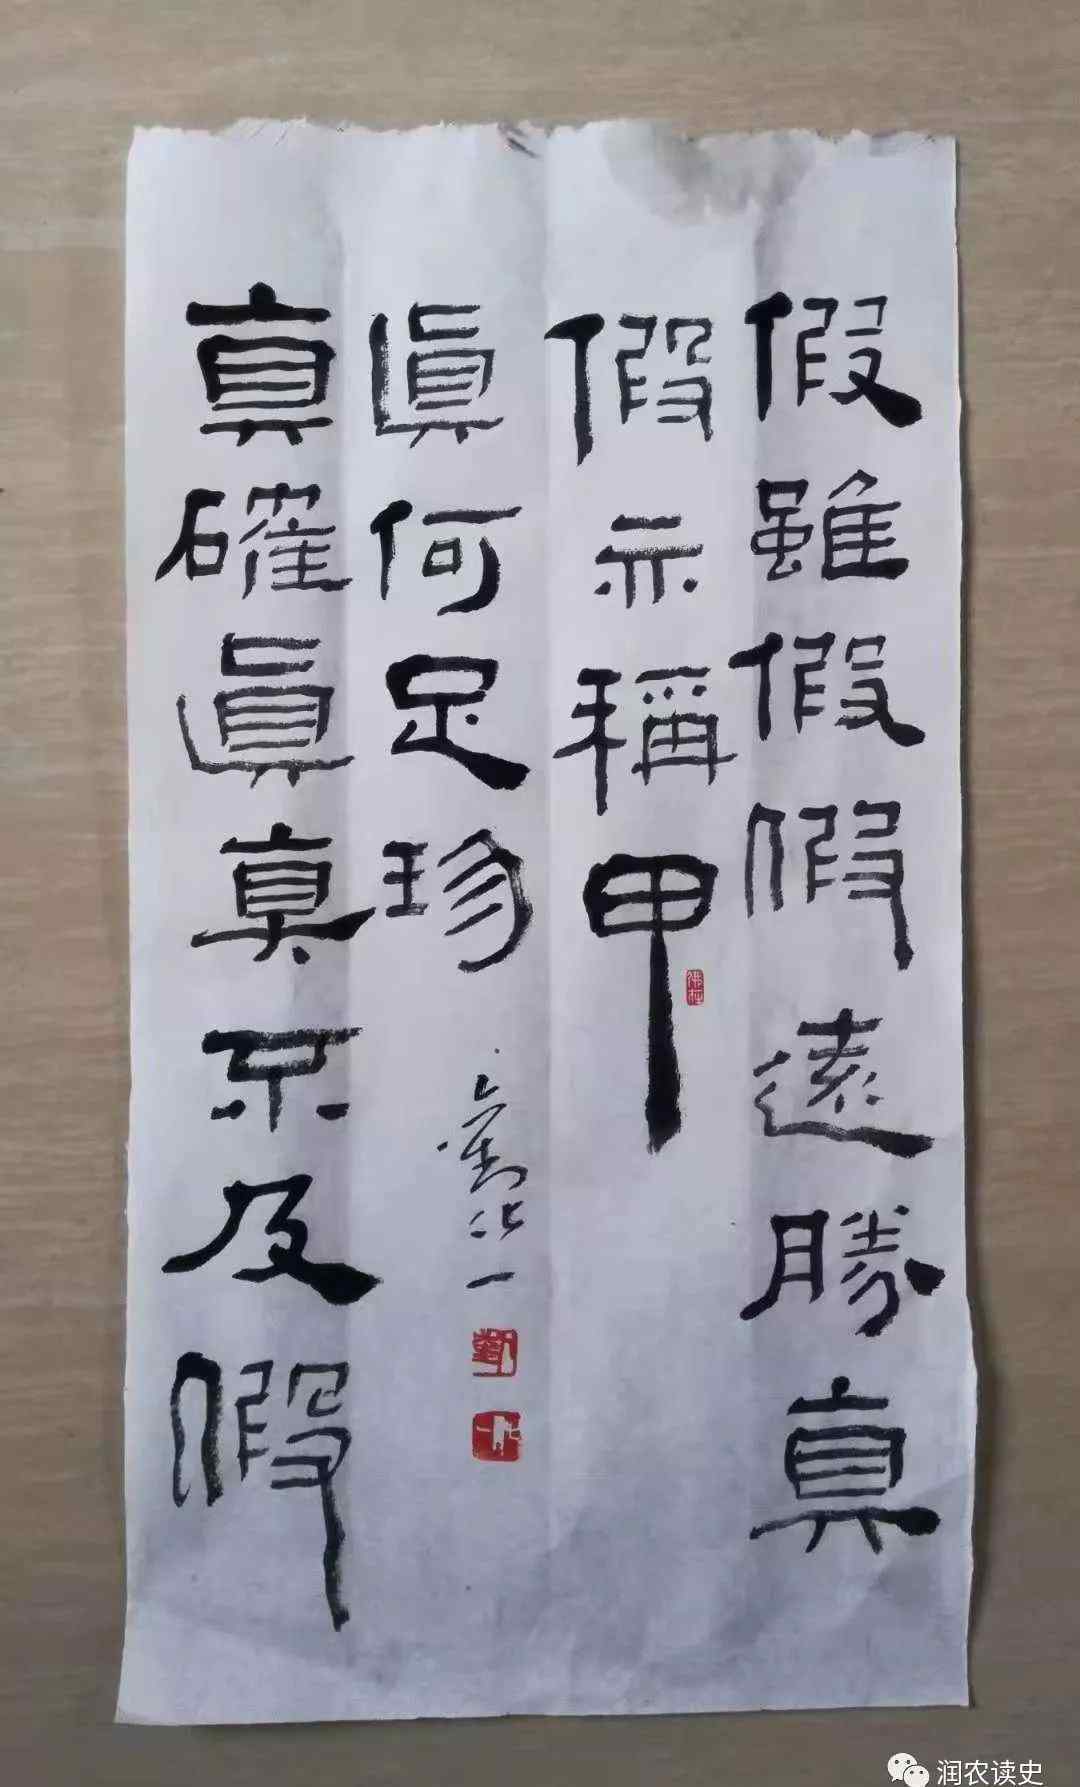 假雖假假遠勝真
假亦稱甲
真確眞真不及假
眞何足珍
润农读史